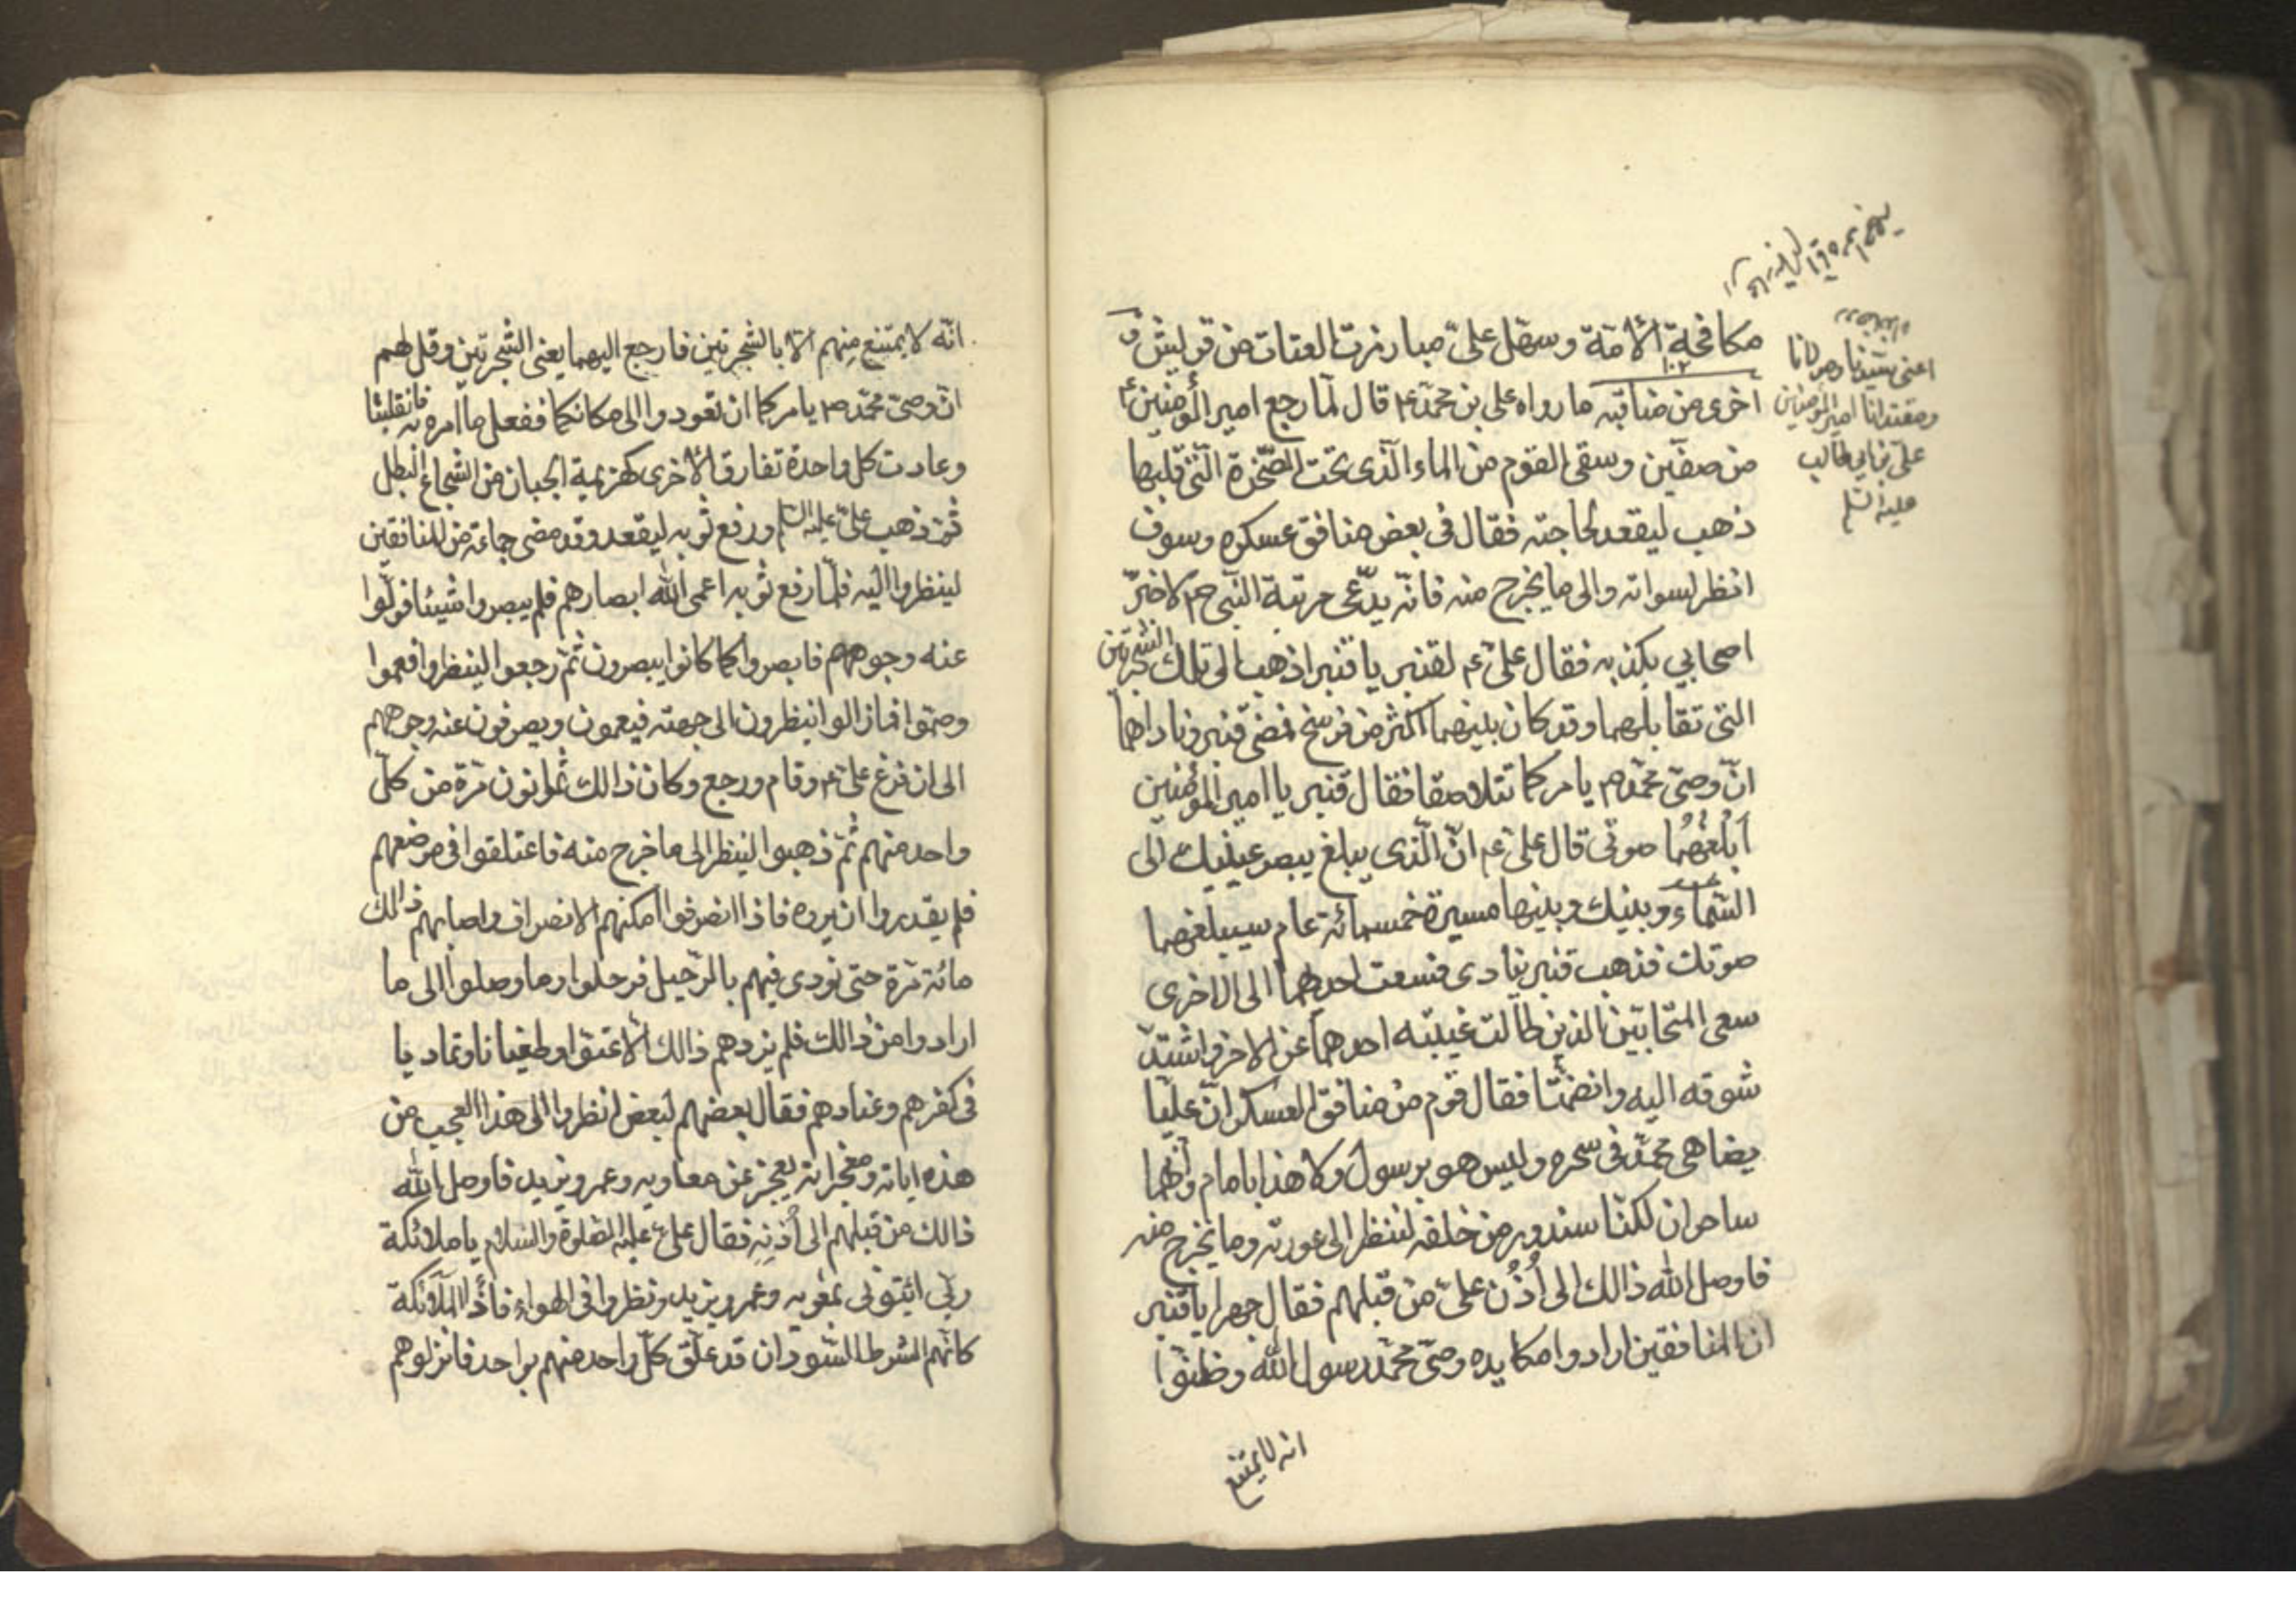 مكافحة الأمة وسهّل علىّ مبارزت العتات من قريش و
١٠٢
أخرى من مناقبه ما رواه على بن محمّد ع قال لمّا رجع امير المؤمنين ع
من صفّين وسقى القوم من الماء الّذى تحت الصّخرة الّتى قلبها
ذهب ليقعد لحاجته فقال فى بعض منافق عسكره وسوف
انظر لسواته والى ما يخرج منه فانّه يدّعى مرتبة النّبى ص لاخبر
اصحابى بكذبه فقال علىّ ع لقنبر يا قنبر اذهب الى تلك الشجرتين
التى تقابلهما وقد كان بينهما اكثر من فرسخ فمضى قنبر وناداهما
انّ وصىّ محمّد ص يامركما تتلاصقا فقال قنبر يا امير المؤمنين
أبلغهُما صوتى قال علىّ ع انّ الّذى يبلغ ببصر عينيك الى
السّماء وبينك وبينها مسيرة خمسمائة عام سيبلغهما
صوتك فذهب قنبر ينادى فسعت احدهما الى الاخرى
سعى المتحابّين الذين طالت غيبته احدهما عن الاخر واشتدّ
شوقه اليه وانضمّتا فقال قوم من منافق العسكر انّ عليّا
يضاهى محمّد فى سحره وليس هو برسول ولا هذا بامام وانّهما
ساحران لكنّا سندور من خلفه لننظر الى عورته وما يخرج منه
فاوصل الله ذالك الى أُذُن علىّ من قبلهم فقال جهرا يا قنبر
ان المنافقين ارادوا مكايده وصىّ محمّد رسول الله وظنّوا
انه لا يمتنع
اعنى سيّدنا ومولانا
ومقتدانا امير المؤمنين
علىّ بن ابى طالب
عليه السّلم
انّه لا يمتنع منهم الّا بالشجرتين فارجع اليهما يعنى الشّجرتين وقل لهم
انّ وصىّ محمّد ص يامركما ان تعودوا الى مكانكما ففعل ما امره به فانقلبتا
وعادت كل واحدة تفارق الأخرى كهزيمة الجبان من الشجاع البطل
ثمّ ذهب علىّ عليه السّلم ورفع ثوبه ليقعد وقد مضى جماعة من المنافقين
لينظروا اليه فلمّا رفع ثوبه اعمى الله ابصارهم فلم يبصروا شيئا فولّوا
عنه وجوههم فابصروا كما كانوا يبصرون ثمّ رجعوا لينظروا فعموا
وصمّوا فما زالوا ينظرون الى جهته فيعمون ويصرفون عنه وجوههم
الى ان فرغ علىّ ع وقام ورجع وكان ذالك ثمانون مرّة من كلّ
واحد منهم ثمّ ذهبوا لينظر الى ما خرج منه فاعتلقوا فى موضعهم
فلم يقدروا ان يروه فاذا انصرفوا امكنهم الانصراف واصابهم ذالك
مائة مرّة حتى نودى فيهم بالرّحيل فرحلوا وما وصلوا الى ما
ارادوا من ذالك فلم يزدهم ذالك الّا عتوّا وطغيانا وتماديا
فى كفرهم وعنادهم فقال بعضهم لبعض انظروا الى هذا العجب من
هذه اياته ومعجزاته يعجز عن معاويه وعمر ويزيد فاوصل الله
ذالك من قبلهم الى أُذنِهِ فقال علىّ عليه الصّلوة والسّلام يا ملائكة
ربّى ائيتونى بمعويه وعمر ويزيد ونظروا فى الهواء فاذا الملآئكة
كانّهم الشرط السّودان قد علّق كلّ واحد منهم بواحد فانزلوهم